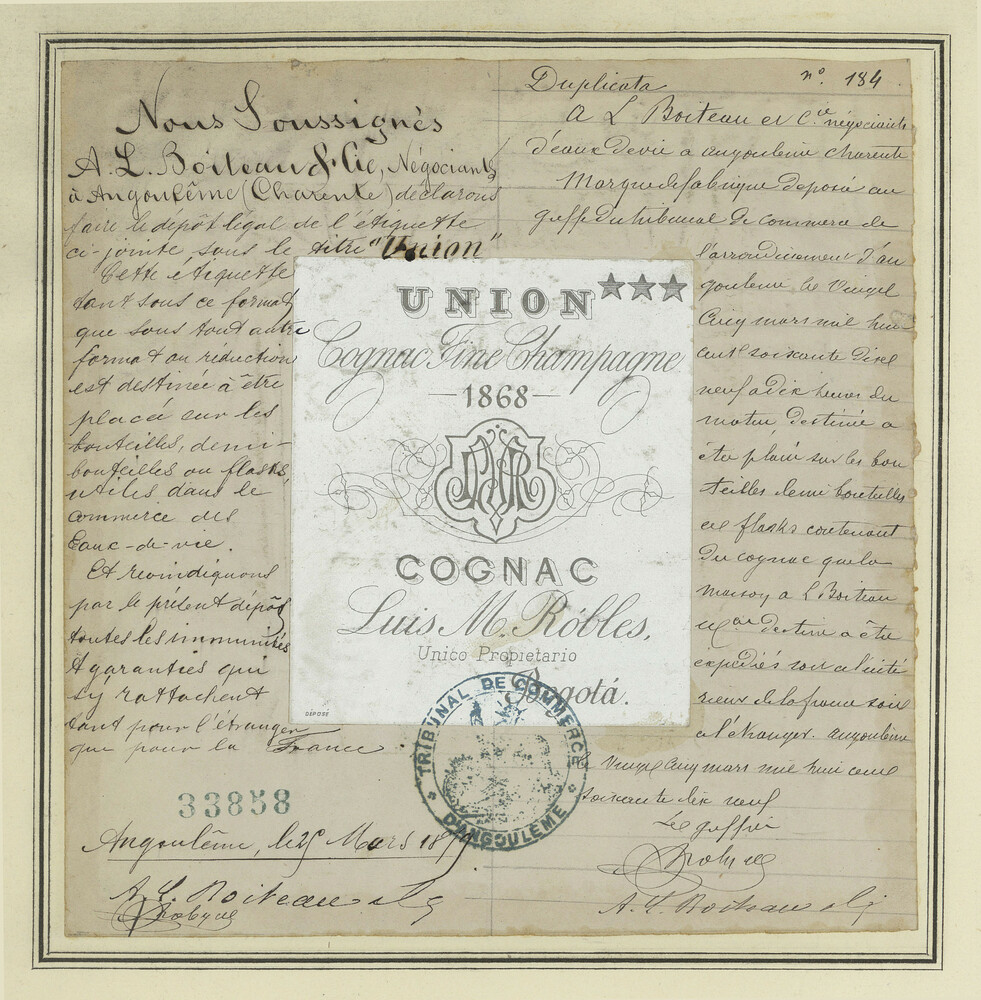 Nous Soussignés
A. L. Boiteau & Cie, Négociants
à Angoulême (Charente) déclarons
faire le dépôt légal de l'étiquette
ci-jointe, sous le titre "Union"
Cette étiquette
tant sous ce format
que sous tout autre
format ou réduction
est destinée à être
placée sur les
bouteilles, demi-
bouteilles ou flasks,
utiles dans le
commerce des
Eaux-de-vie.
Et revindiquons
par le présent dépôt
toutes les immunités
& garanties qui
s'y rattachent
tant pour l'étranger
que pour la France.
33858
Angoulême, le 25 Mars 1879.
A. L. Boiteau & Cie
Duplicata nº. 184
A L Boiteau et Cie négociants
d'eaux de vie a angouleme charente
Marque de fabrique deposée au
greffe du tribunal de commerce de
l'arrondissement d'an
gouleme le Vingt
Cinq mars mil hui
cent soixante dix
neuf a dix heures du
matin, destiné a
être placé sur les bou
teilles demi bouteilles
et flasks contenant
du cognac que la
maison A L Boiteau
& Cie destine a être
expediés soit a l'inté
rieur de la france soit
a l'étranger. angouleme
le Vingt Cinq mars mil huit cent
soixante dix neuf
Le greffier
A. L. Boiteau & Cie
UNION ★★★
Cognac Fine Champagne
1868
COGNAC
Luis M. Róbles,
Unico Propietario
Bogotá.
DÉPOSÉ
TRIBUNAL DE COMMERCE
D'ANGOULÊME